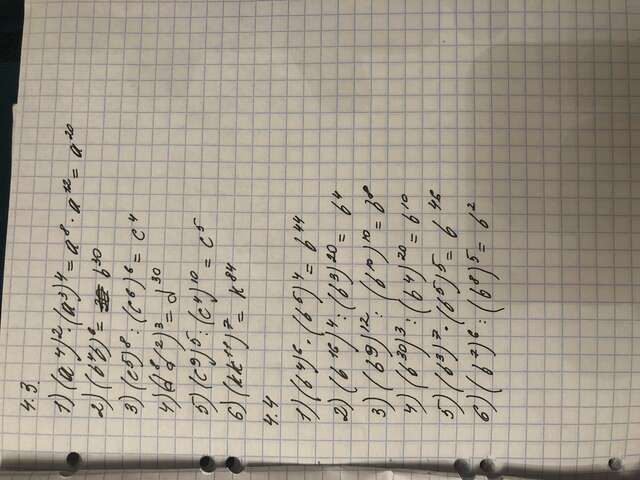 4.3
1) (a⁴)² · (a³)⁴ = a⁸ · a¹² = a²⁰
2) (b⁴b)⁶ = b³⁰
3) (c⁵)⁸ : (c⁶)⁶ = c⁴
4) (d⁸d²)³ = d³⁰
5) (c⁹)⁵ : (c⁴)¹⁰ = c⁵
6) (kk¹¹)⁷ = k⁸⁴
4.4
1) (b⁴)⁶ · (b⁵)⁴ = b⁴⁴
2) (b¹⁶)⁴ : (b³)²⁰ = b⁴
3) (b⁹)¹² : (b¹⁰)¹⁰ = b⁸
4) (b³⁰)³ : (b⁴)²⁰ = b¹⁰
5) (b³)⁷ · (b⁵)⁵ = b⁴⁶
6) (b⁷)⁶ : (b⁸)⁵ = b²